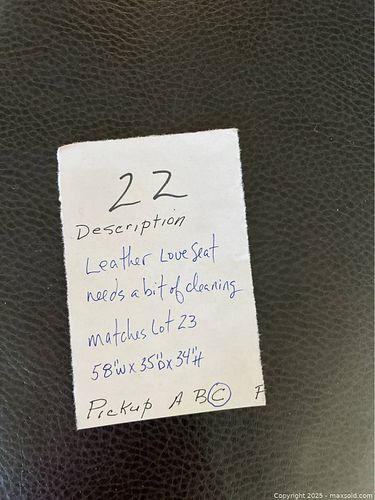 22
Description
Leather Love Seat
needs a bit of cleaning
matches Lot 23
58"W x 35"D x 34"H
Pickup A B C F
Copyright 2025 - maxsold.com